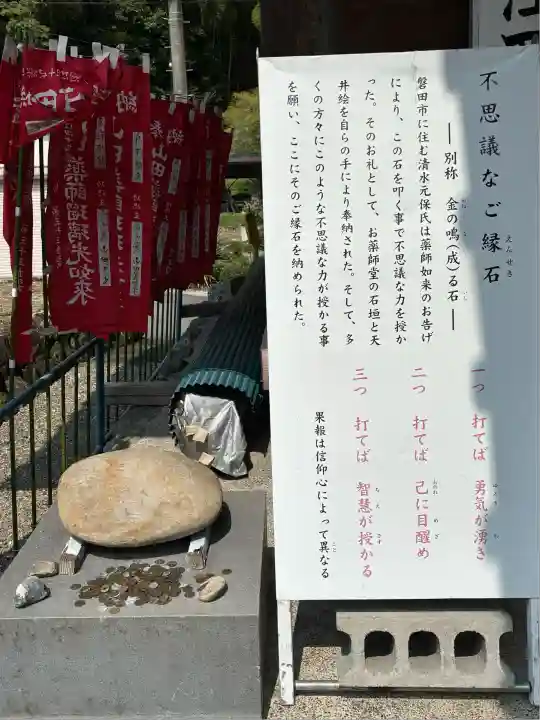 不思議なご縁石
えんせき
― 別称 金の鳴(成)る石 ―
かね
いし
磐田市に住む清水元保氏は薬師如来のお告げ
により、この石を叩く事で不思議な力を授か
った。そのお礼として、お薬師堂の石垣と天
井絵を自らの手により奉納された。そして、多
くの方々にこのような不思議な力が授かる事
を願い、ここにそのご縁石を納められた。
一つ 打てば 勇気が湧き
ゆうき
わ
二つ 打てば 己に目醒め
おのれ
めざ
三つ 打てば 智慧が授かる
ちえ
さず
果報は信仰心によって異なる
こと
薬師瑠璃光如来
奉納
山田